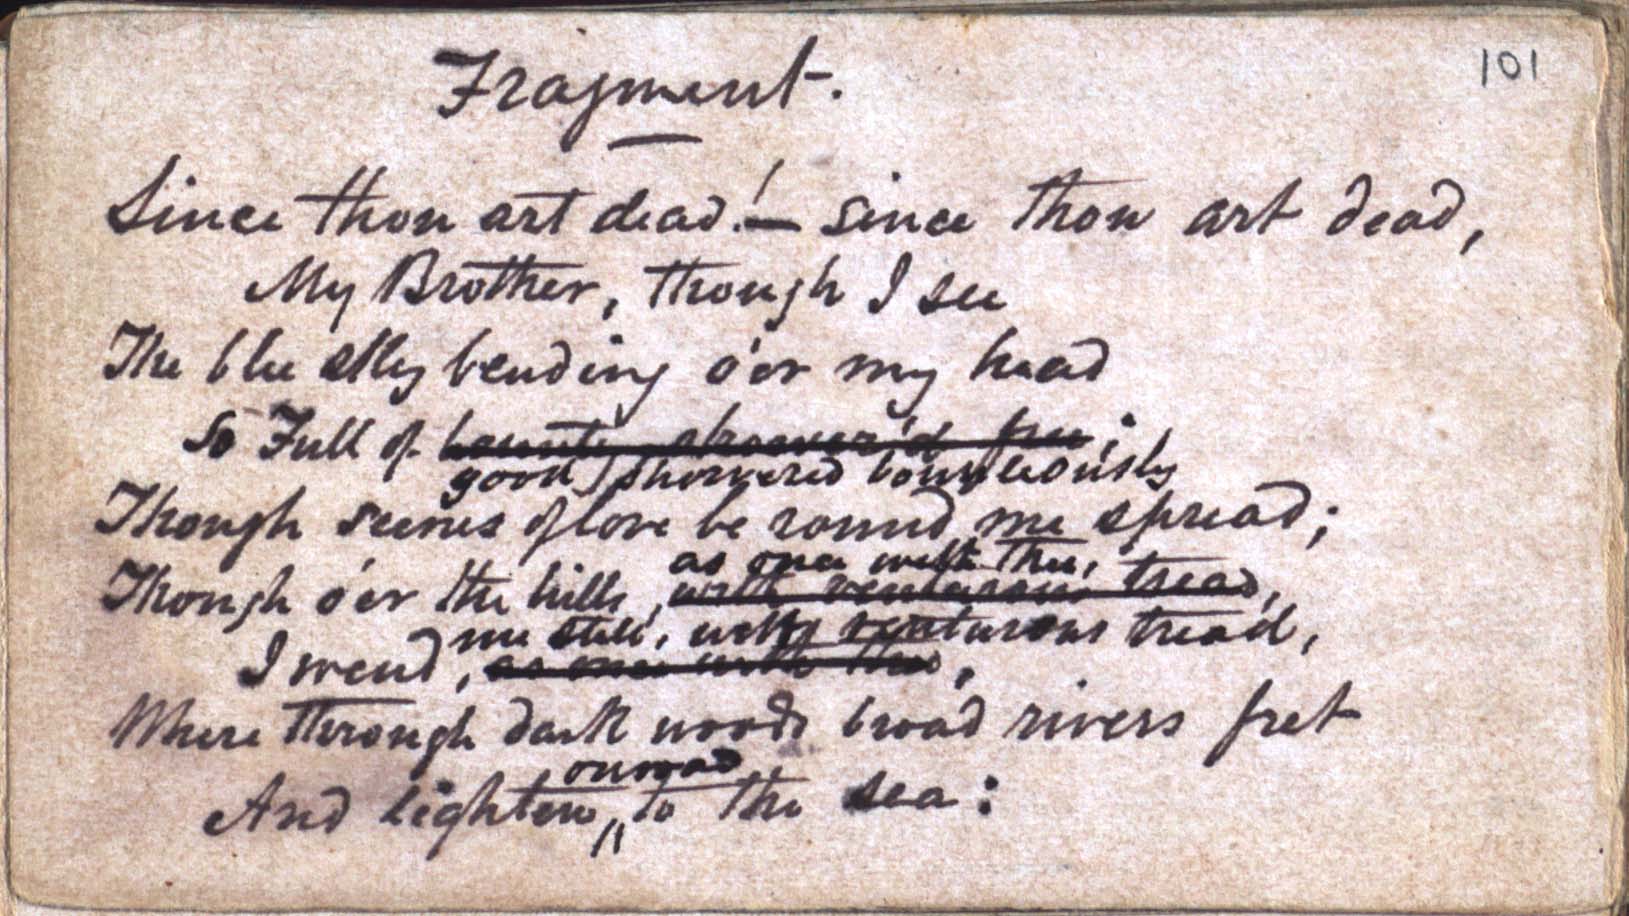 101
Fragment.
Since thou art dead!— since thou art dead,
My Brother, though I see
The blue sky bending o'er my head
So Full of bounty shower'd free;
good, showered bounteously
Though scenes of love be round me spread;
as once with thee,
Though o'er the hills, with venturous tread,
me still, with venturous tread,
I wend, as once with thee,
Where through dark woods broad rivers fret
onward
And lighten, to the sea: